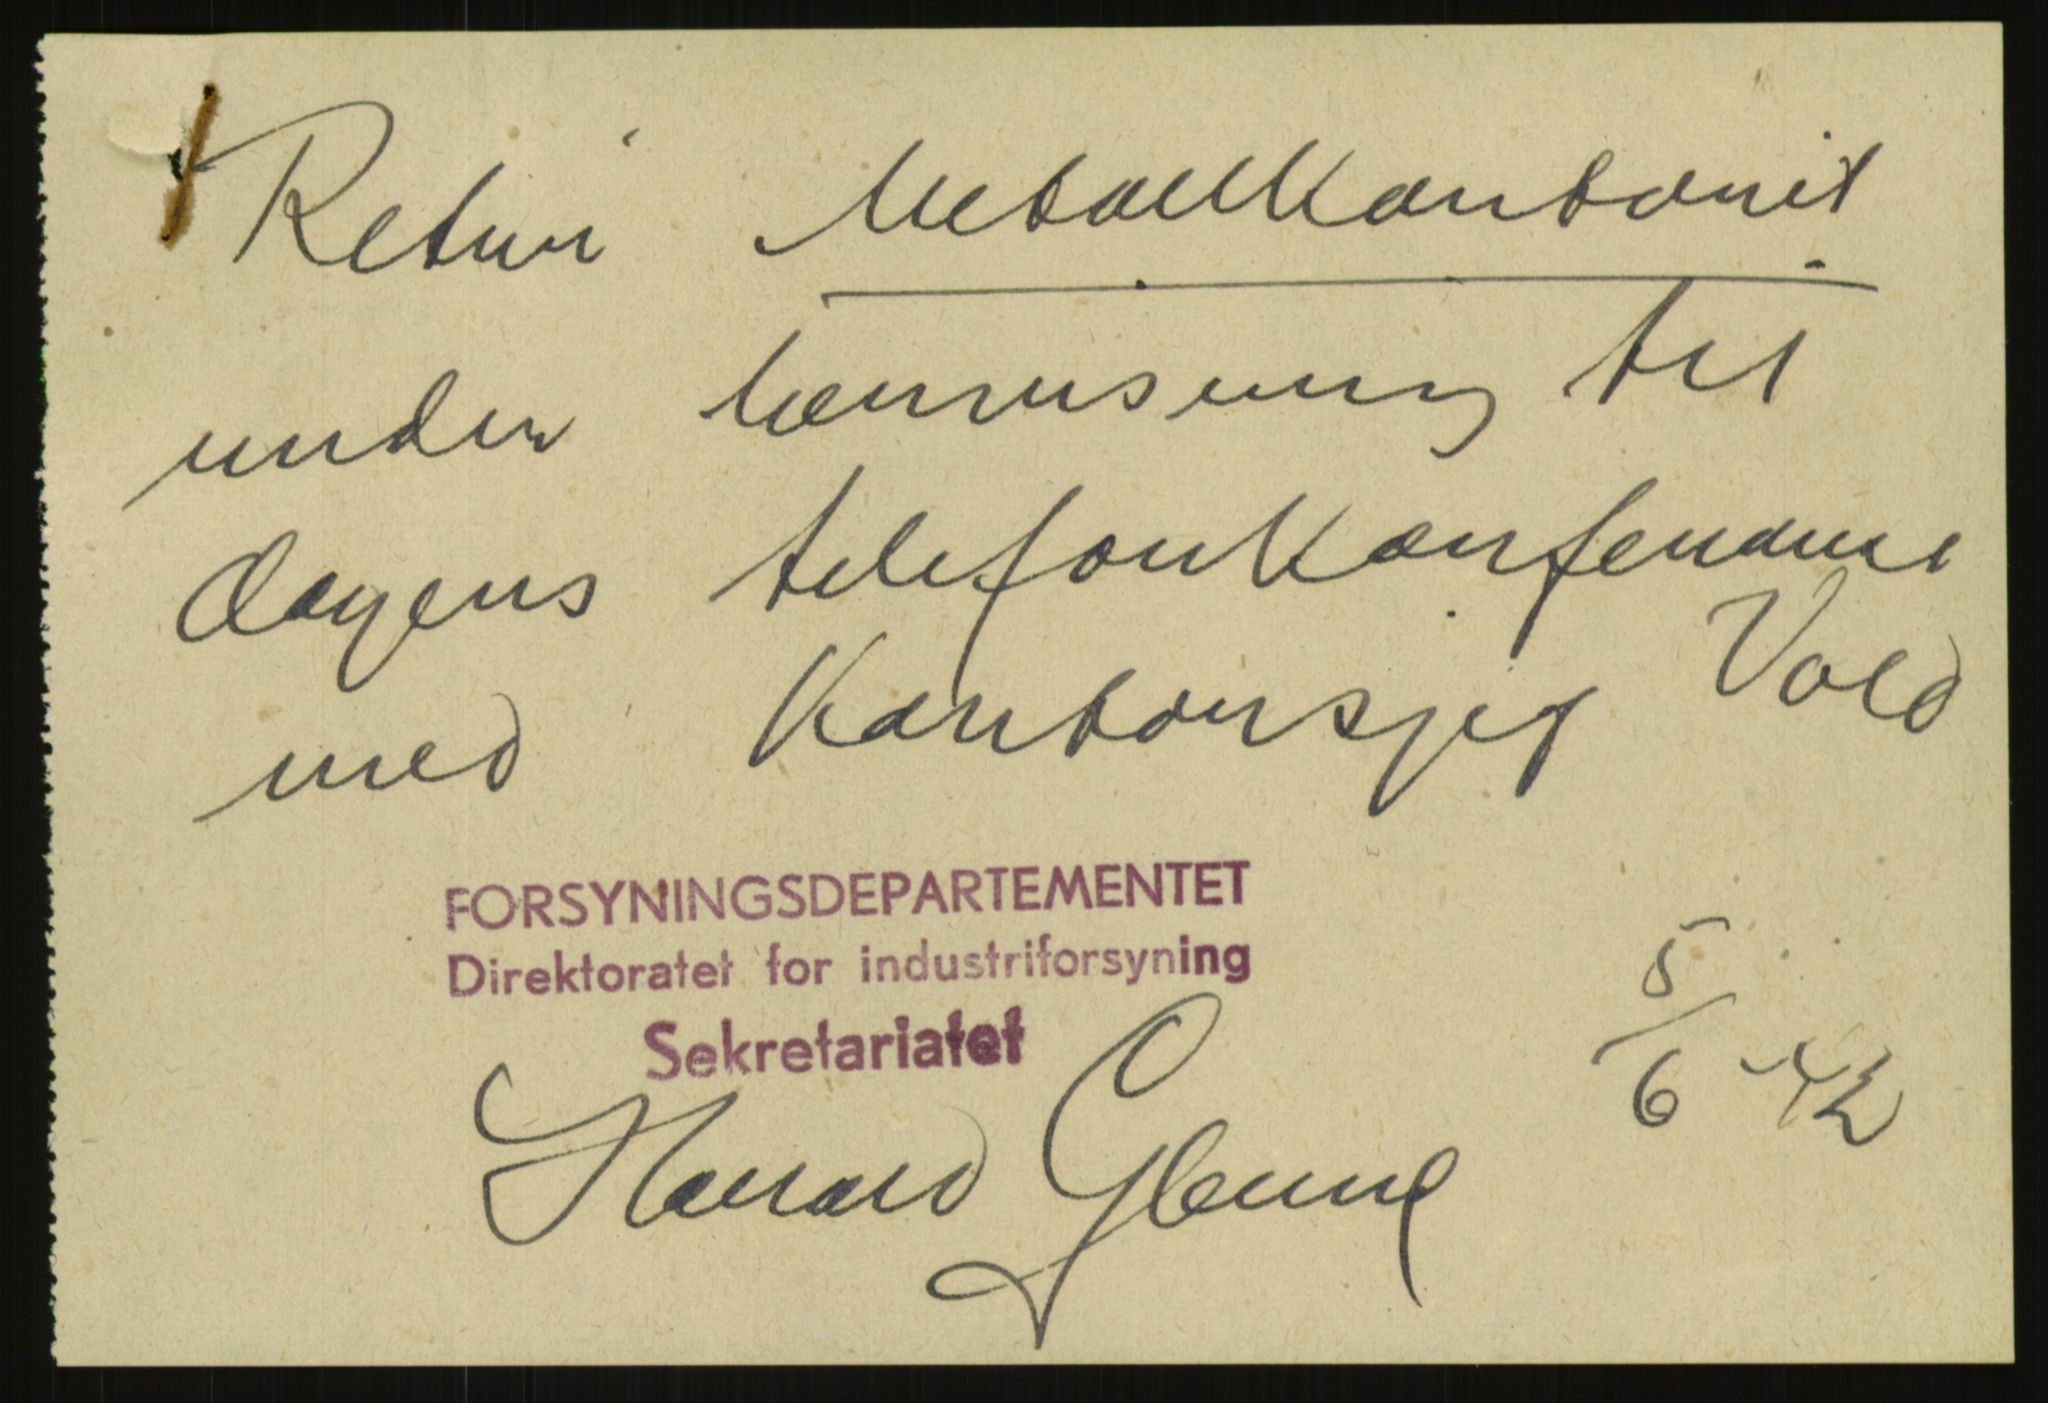 Retur Metallkontoret
under henvisning til
dagens telefonkonferanse
med Kontorsjef Vold
FORSYNINGSDEPARTEMENTET
Direktoratet for industriforsyning
Sekretariatet
5/6-42
Harald